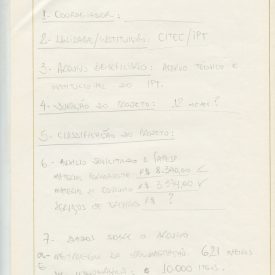 1- COORDENADOR:
2- UNIDADE/INSTITUIÇÃO: CITEC/IPT
3- ARQUIVO BENEFICIÁRIO: ACERVO TÉCNICO E
INSTITUCIONAL DO IPT.
4- DURAÇÃO DO PROJETO: 12 meses?
5- CLASSIFICAÇÃO DO PROJETO:
6- AUXÍLIO SOLICITADO À FAPESP
MATERIAL PERMANENTE R$
MATERIAL DE CONSUMO R$
SERVIÇOS DE TERCEIROS R$ ?
7- DADOS SOBRE O ACERVO
METRAGEM DA DOCUMENTAÇÃO 621 METROS
10.000 ITENS.